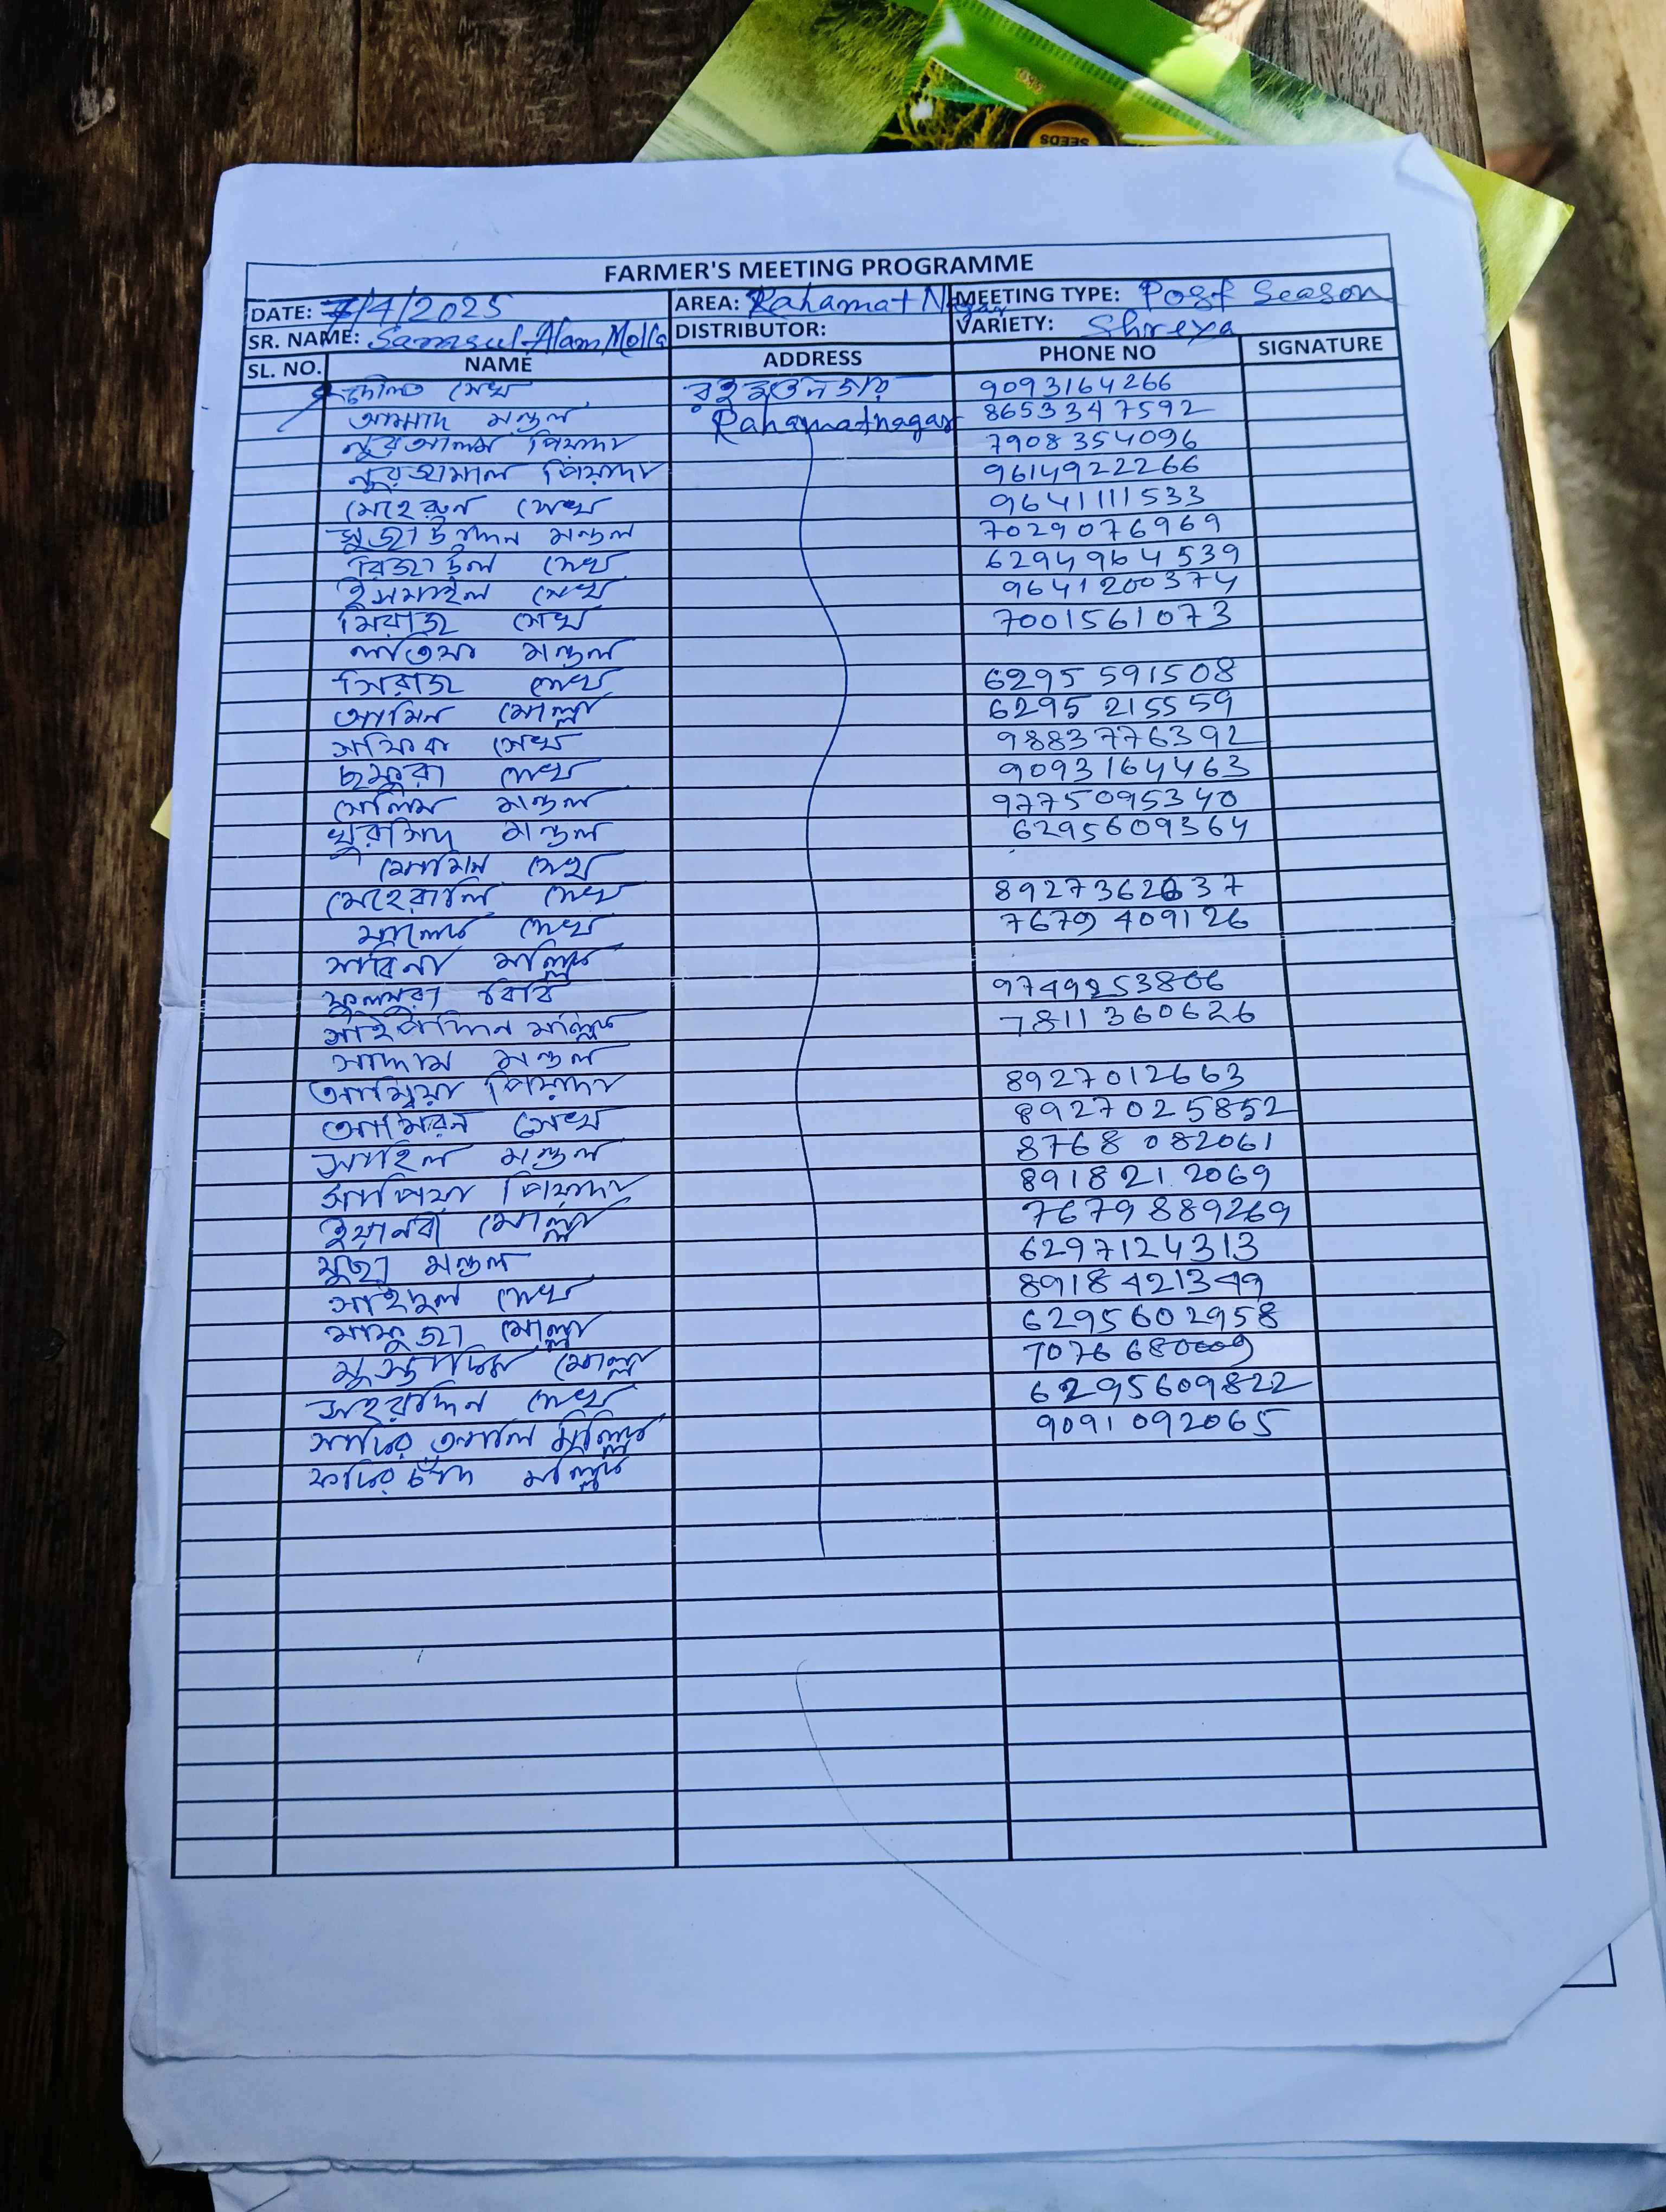 SEEDS
FARMER'S MEETING PROGRAMME
DATE: 7/4/2025 AREA: Rahamat Nagar MEETING TYPE: Post Season
SR. NAME: Samsul Alam Molla DISTRIBUTOR: VARIETY: Shreya
SL. NO. NAME ADDRESS PHONE NO SIGNATURE
দৌলত সেখ 9093164266
আমাদ মন্ডল Rahamatnagar 8653347592
নুরআলম পিয়াদা 7908354096
নুরজামাল পিয়াদা 9614922266
মেহেরুন সেখ 9641111533
সুজাউদ্দিন মন্ডল 7029076969
রিজাউল সেখ 6294964539
ইসমাইল সেখ 9641200374
মিরাজ সেখ 7001561073
লতিফা মন্ডল
সিরাজ সেখ 6295591508
আমিন মোল্লা 6295215559
সেখ 9883776392
সেখ 9093164463
সেলিম মন্ডল 9775095340
খুরসিদ মন্ডল 6295609364
মোমিন সেখ
মেহেরালি সেখ 8927362637
সেখ 7679409126
সাবিনা মল্লিক
ফুলসুরা বিবি 9749253806
সাইদ্দিন মল্লিক 7811360626
সাদ্দাম মন্ডল
আম্বিয়া পিয়াদা 8927012663
আমিরন সেখ 8927025852
সাহিল মন্ডল 8768082061
সাপিয়া পিয়াদা 8918212069
মোল্লা 7679889269
মন্ডল 6297124313
সাইদুল সেখ 8918421349
মাফুজা মোল্লা 6295602958
মোল্লা
সেখ 6295609822
মল্লিক 9091092065
ফকির চাঁদ মল্লিক